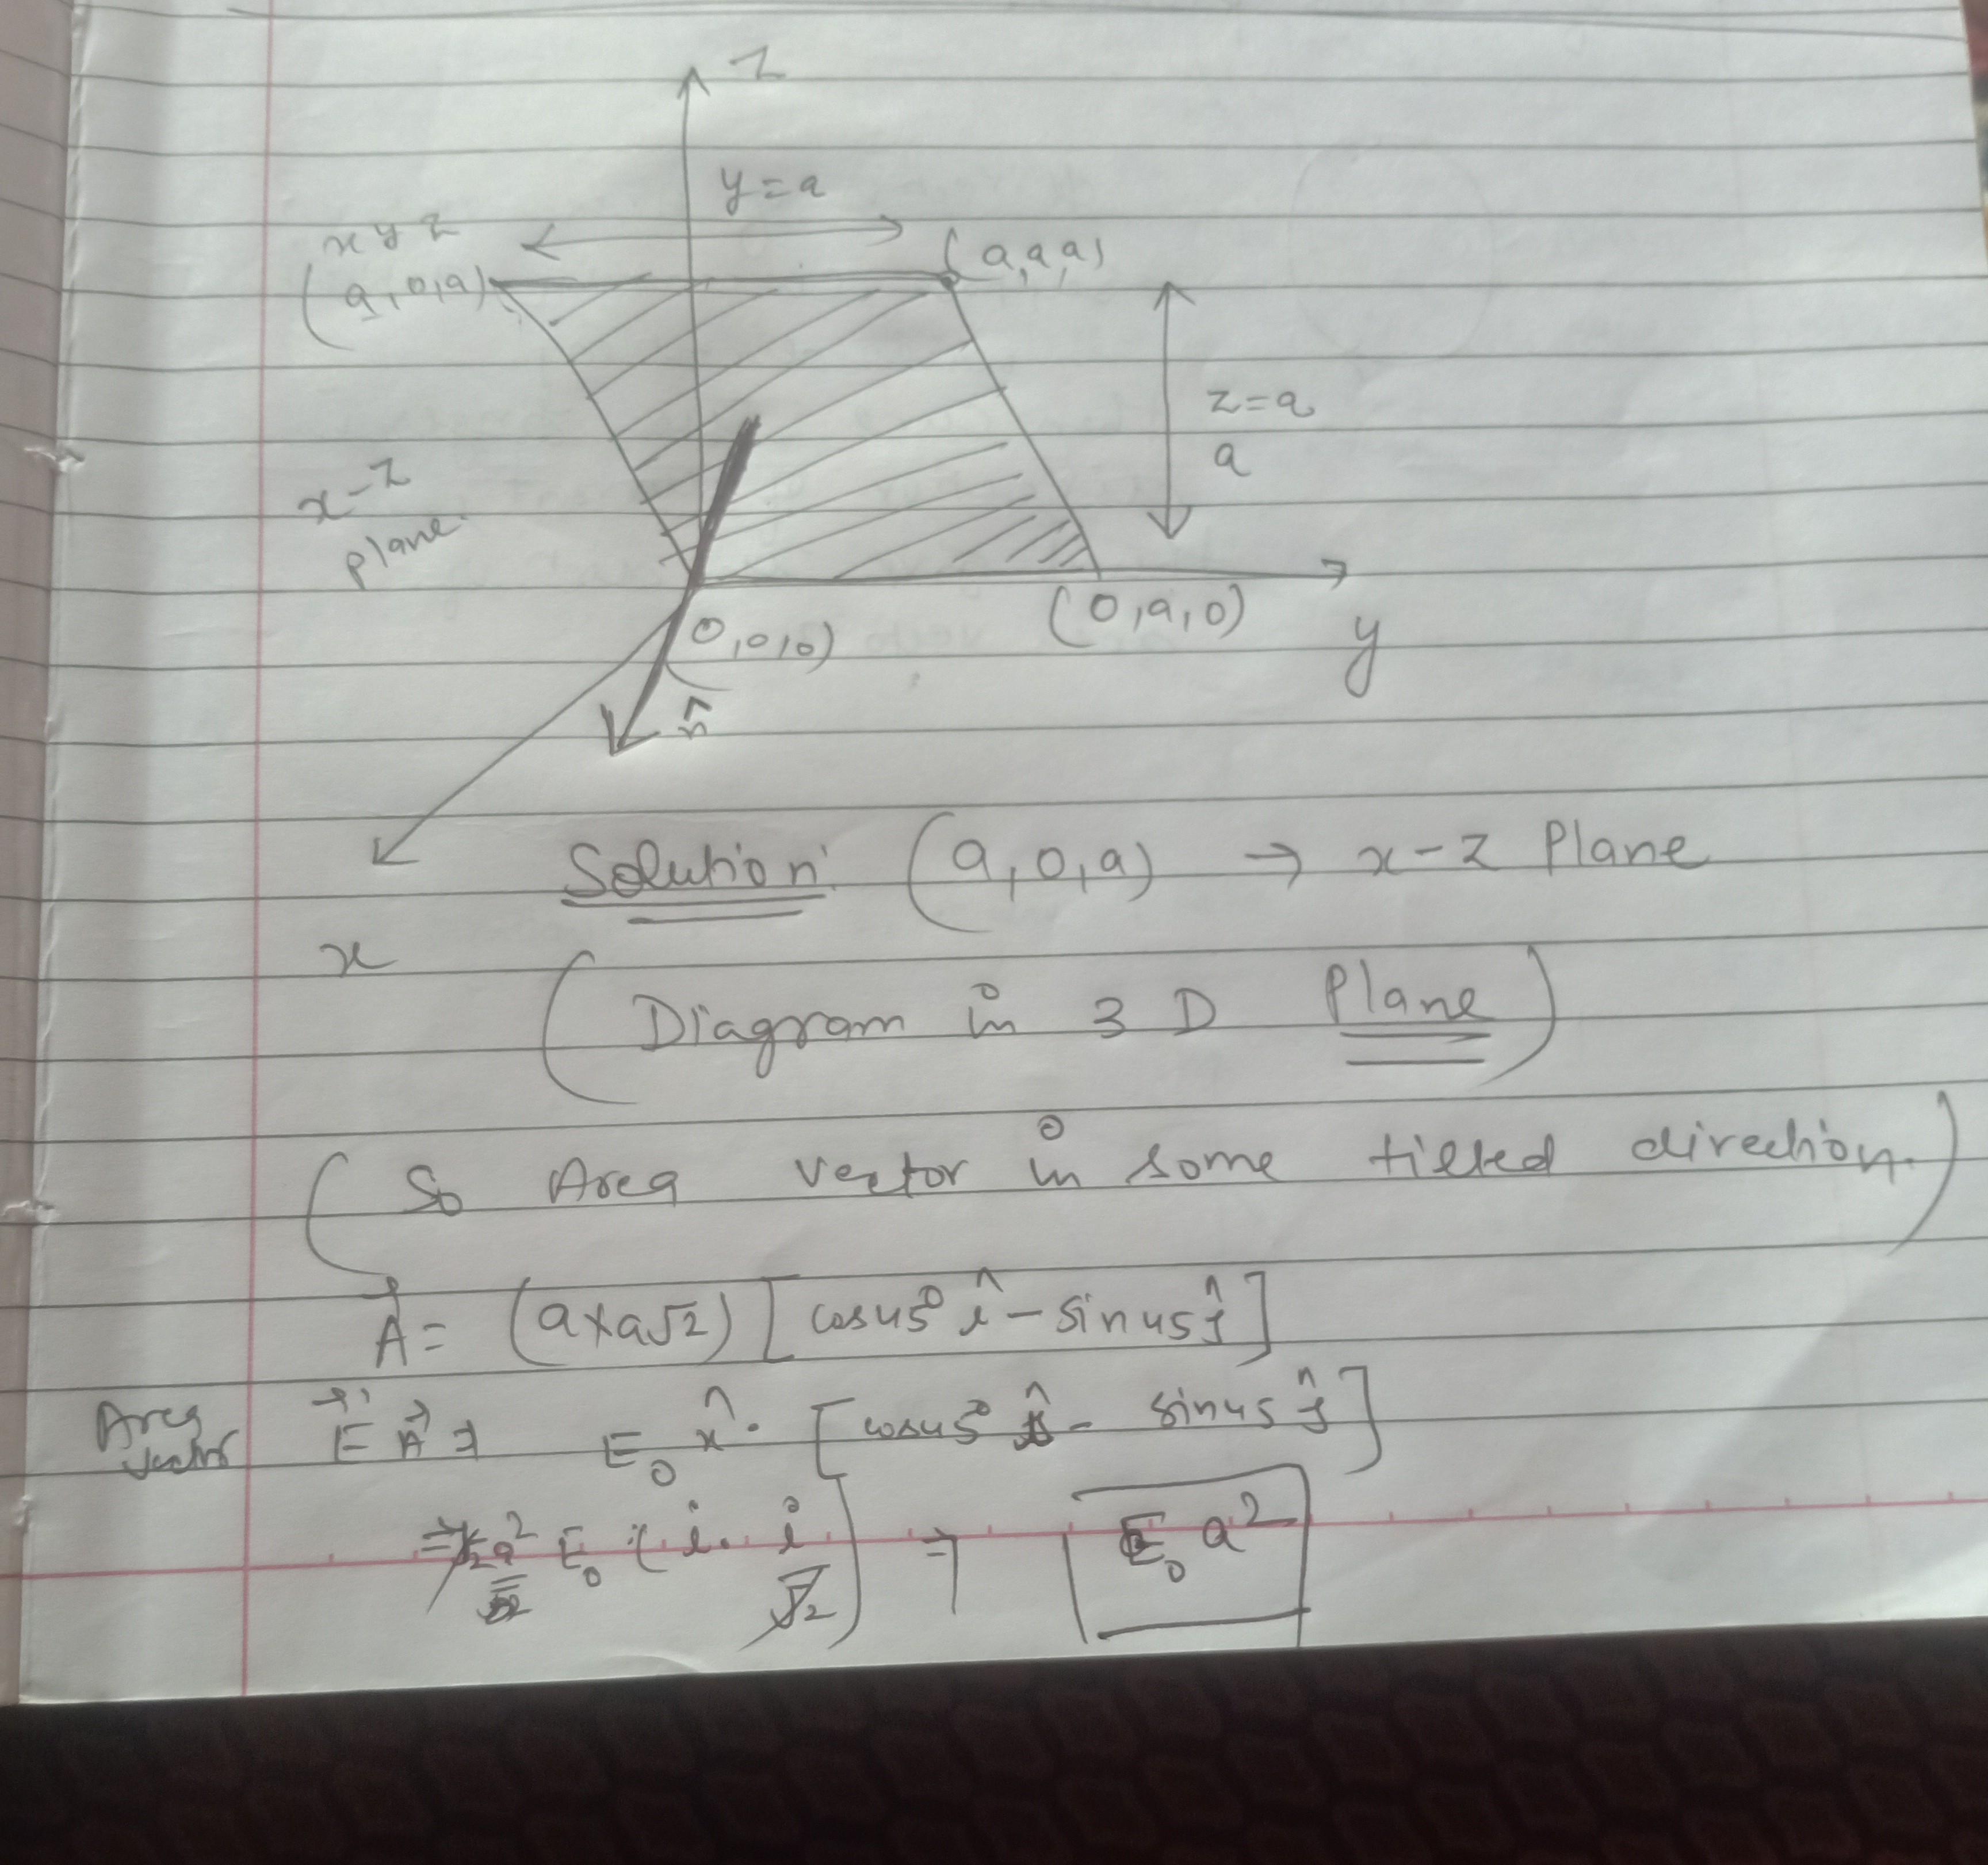 z
y = a
x y z
(a, 0, a)
(a, a, a)
z = a
a
x-z
plane.
(0, 0, 0)
(0, a, 0)
y
n̂
Solution: (a, 0, a) → x-z Plane
x
(Diagram in 3 D Plane)
(So Area vector in some tilted direction.)
A⃗ = (a×a√2) [cos45° î - sin45 ĵ]
Area vector E⃗ A⃗ ⇒ E₀ x̂ . [cos45° - sin45 ĵ]
⇒ √2 a² E₀ (i . i/√2) ⇒ E₀ a²